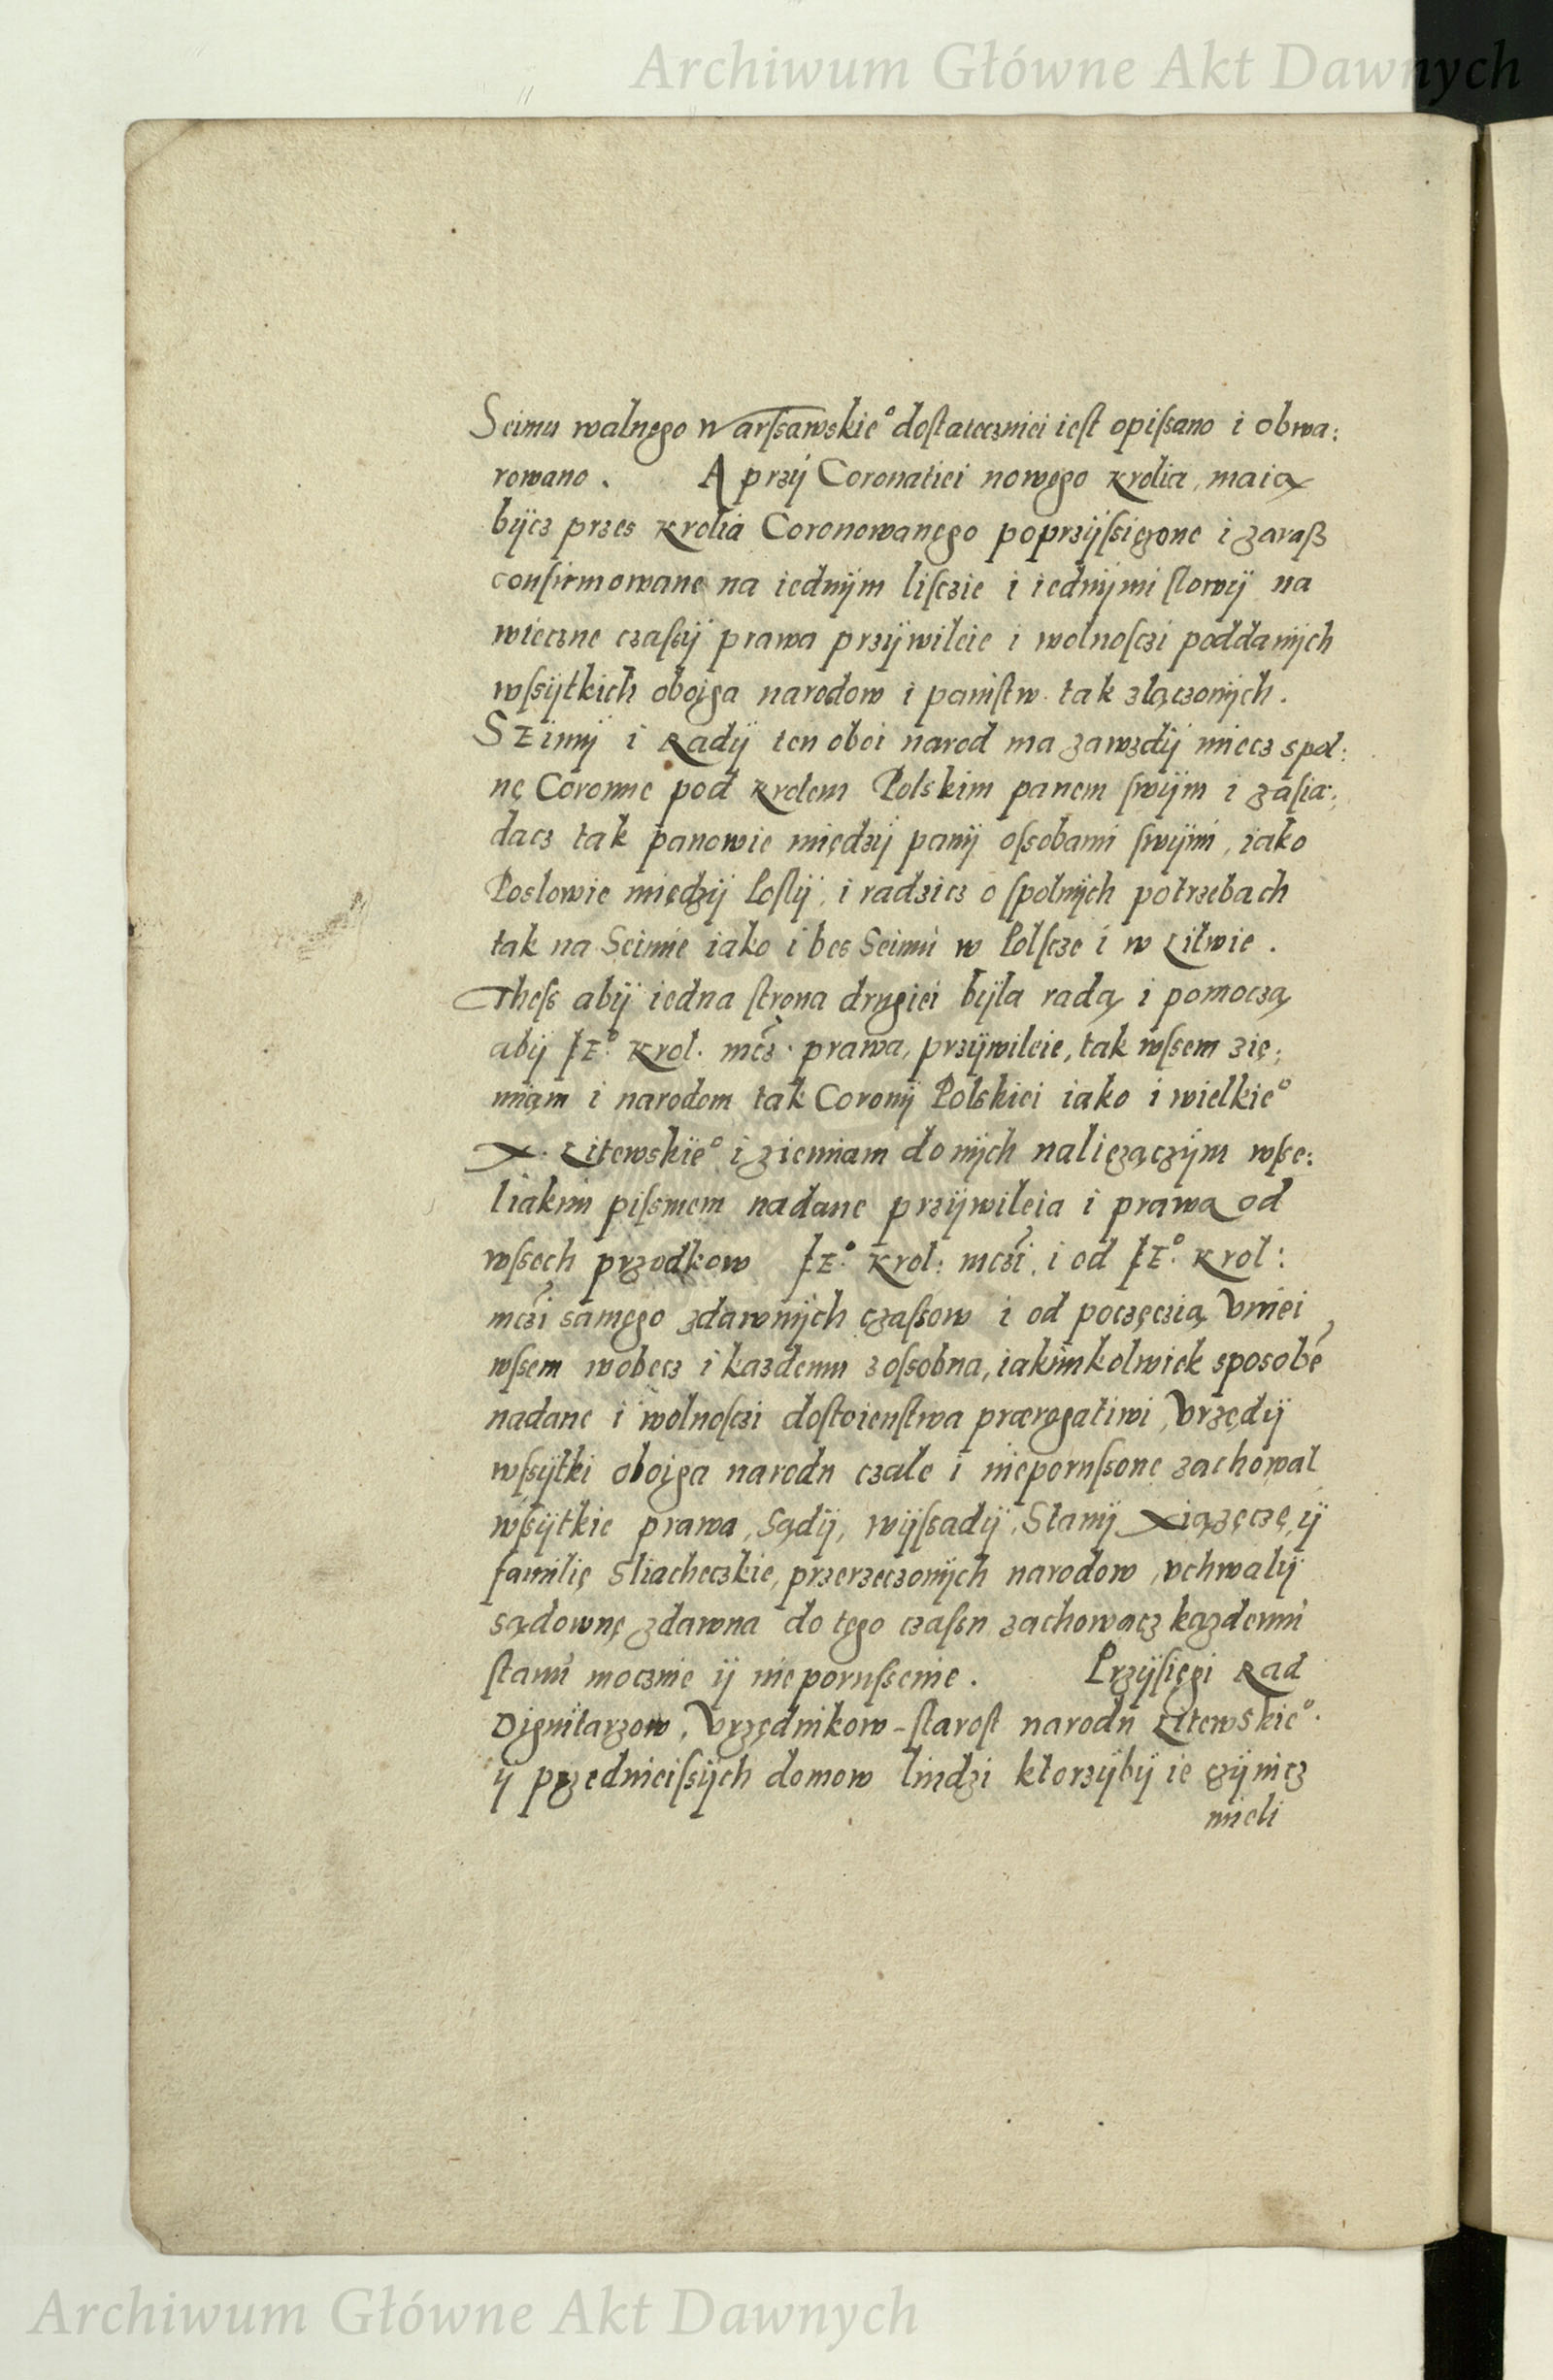 Archiwum Główne Akt Dawnych
Seimu walnego Warſsawskieº doſtatecznieí ieſt opiſsano i obwa:
rowano . A przÿ Coronatiei nowego Krolia, maią
bÿcz przes Krolia Coronowanęgo poprzÿſsięzone i zaraß
confirmowane na iednÿm liſczie i iednÿmi ſlowÿ na
wieczne czaſsÿ prawa przÿwileie i wolnoſczi poddanÿch
wſsÿtkich oboięa narodow i panſtw tak złączonÿch .
SEimÿ i Radÿ ten oboi narod ma zawzdÿ miecz spol:
nę Coronne pod Krolem Polskim panem ſwÿm i zaſia:
dacz tak panowie międzÿ panÿ oſsobami ſwÿmi, iako
Poslowie międzÿ Poſlÿ, i radzicz o ſpolnÿch potrzebach
tak na Seimie iako i bes Seimu w Polſcze i w Litwie .
Theſs abÿ iedna ſtrona drugiei bÿla radą i pomoczą
abÿ JEº Krol. mcz. prawa, przÿwileie, tak wſsem zię:
miąm i narodom tak Coronÿ Polskiei iako i wielkieº
X. Litewskieº i ziemiam do nÿch naliezączÿm wße:
liakim piſsmem nadane przÿwileia i prawa od
wſsech przodkow JE.º Krol: mczi, i od JEº. Krol:
mczi samęgo zdawnÿch czaſsow i od poczęczią Vniei
wſsem wobecz i kazdemu zoſsobna, iakimkolwiek sposobē
nadane i wolnoſczi doſtoienſtwa prærogatiwi, Vrzędÿ
wſsÿtki oboiga narodu czale i nieporuſsone zachował
wſsÿtkie prawa, Sądÿ, wÿſsadÿ, Stanÿ Xiązęczę, ÿ
familię Sliacheczkie, przerzeczonÿch narodow, vchwalÿ
sądownę zdawna do tęgo czaſsu zachowacz kazdemu
ſtanu moczme ÿ nieporuſsenie . Przÿſięgi Rad
Dignitarzow, Vrzędnikow – ſtaroſt narodu Litewskieº.
ÿ przednieiſsÿch domow liudzi ktorzÿbÿ ie czÿnicz
mieli
Archiwum Główne Akt Dawnych